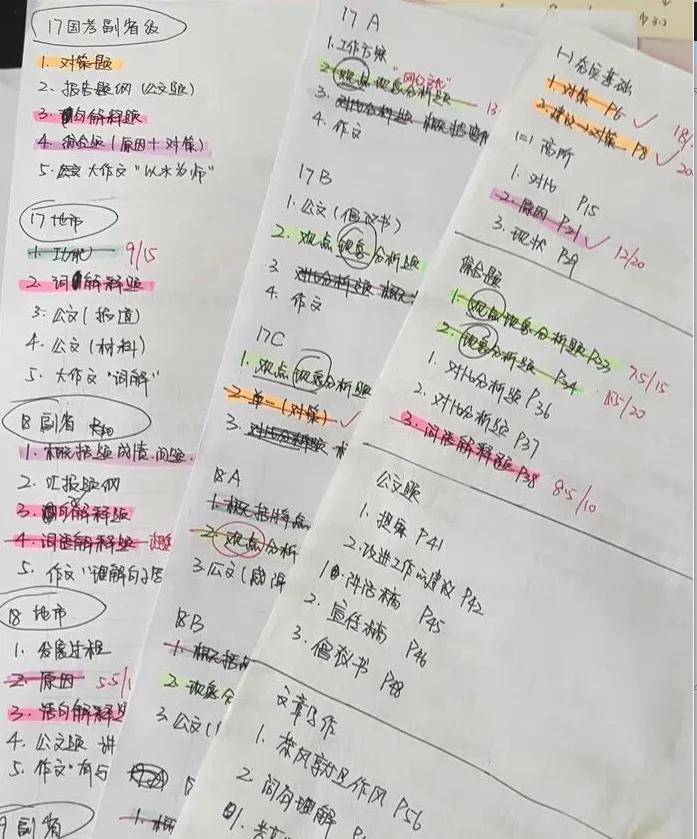 17国考副省级
1. 对策题
2. 报告提纲（公文题）
3. 句解释题
4. 综合题（原因+对策）
5. 大作文"以水为师"
17地市
9/15
2. 词解释题
3. 公文（报道）
4. 公文（材料）
5. 大作文"词解"
18副省
1. 概括题成绩、问题
2. 汇报提纲
3. 句解释题
4. 词语解释题
5. 作文"理解句子
18地市
1. 发展过程
2. 原因 5.5/1
3. 语句解释题
4. 公文题 讲
5. 作文"有与
副省
17A
1. 工作方案
2. 观点 分析题
13.
4. 作文
17B
1. 公文（倡议书）
2. 观点启示分析题
3. 对比分析题 概
4. 作文
17C
1. 观点启示分析题
2. 单一（对策）
3. 对比分析题
18A
1. 概括特点
2. 观点分析
3. 公文（
18B
1. 概括
2. 启示分
3. 公文（
1. 概
(一) 基础
1. 对策 P6 ✓ 18/
2. 建议→对策 P8 ✓ 20
(二)
1. 对比 P15
2. 原因 P21 ✓ 12/20
3. 现状 P29
综合题
1. 观点启示分析题 P33 7.5/15
2. 启示分析题 P34 /20
1. 对比分析题 P36
2. 对比分析题 P37
3. 词语解释题 P38 8.5/10
公文题
1. 提案 P41
2. 改进工作的建议 P42
1. 讲话稿 P45
2. 宣传稿 P46
3. 倡议书 P48
文章写作
1. 作风 P56
2. 问句理解 P